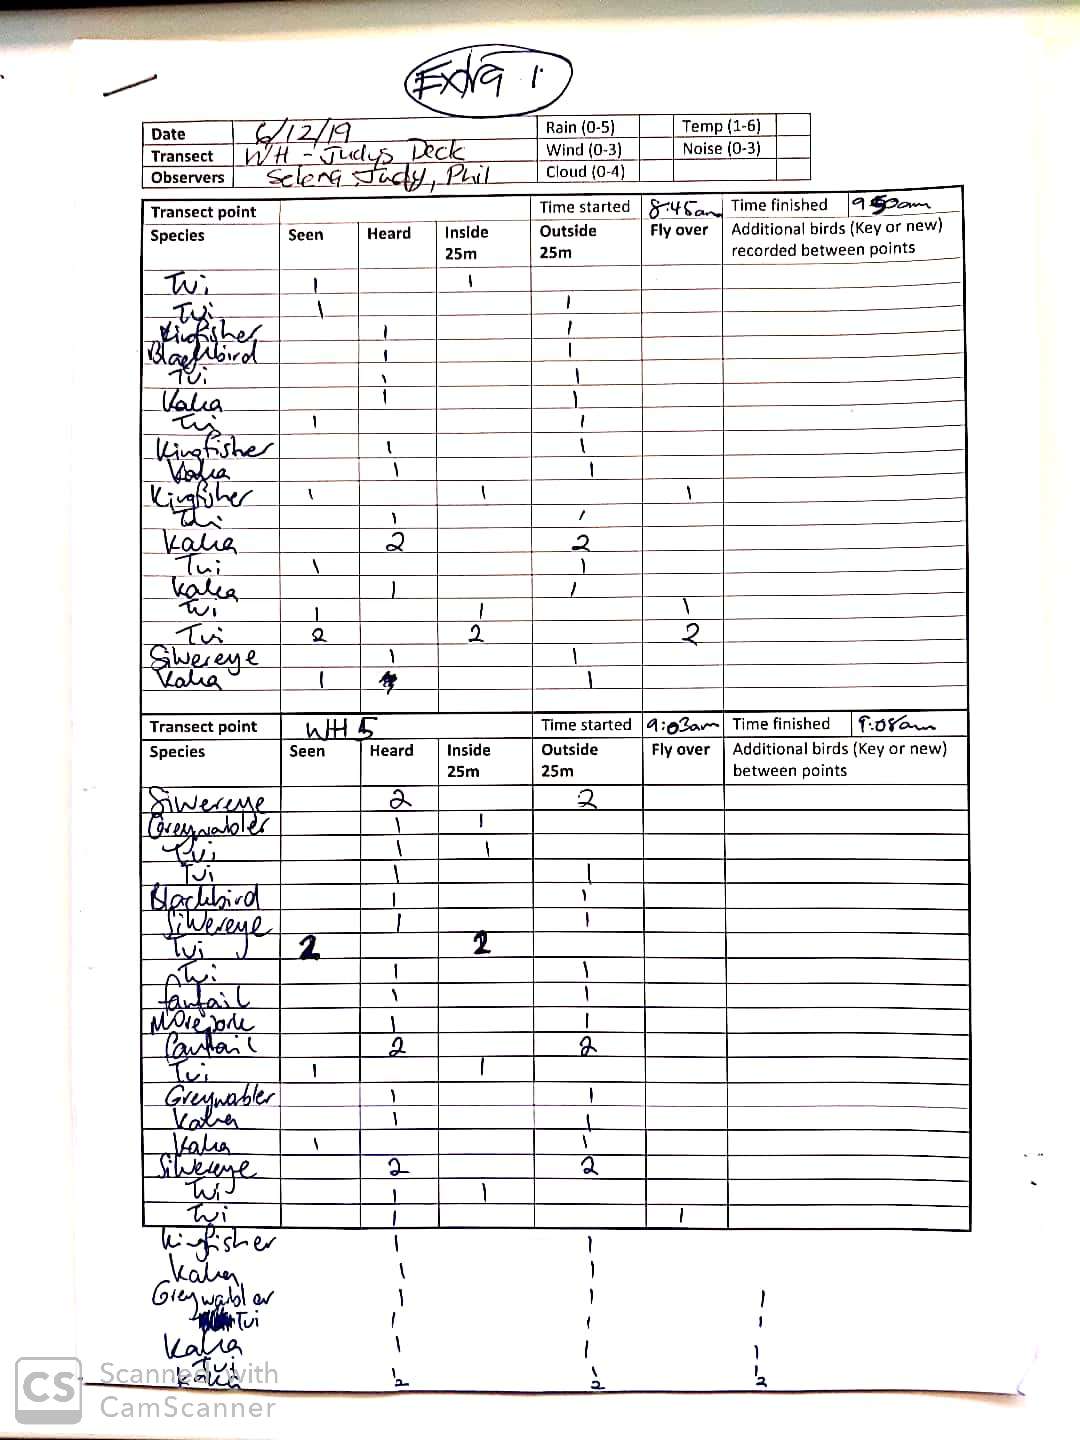 Extra 1
Date 6/12/19 Rain (0-5) Temp (1-6)
Transect WH - Judys Deck Wind (0-3) Noise (0-3)
Observers Selena, Judy, Phil Cloud (0-4)
Transect point Time started 8:45am Time finished
Species Seen Heard Inside 25m Outside 25m Fly over Additional birds (Key or new) recorded between points
Tui 1 1
Tui 1 1
Kingfisher 1 1
Blackbird 1 1
Tui 1 1
Kaka 1 1
Tui 1 1
Kingfisher 1 1
Kaka 1 1
Kingfisher 1 1 1
Tui 1 1
Kaka 2 2
Tui 1 1
Kaka 1 1
Tui 1 1 1
Tui 2 2 2
Silvereye 1 1
Kaka 1 1
Transect point WH 5 Time started 9:03am Time finished 9:08am
Species Seen Heard Inside 25m Outside 25m Fly over Additional birds (Key or new) between points
Silvereye 2 2
Greywabler 1 1
Tui 1 1
Tui 1 1
Blackbird 1 1
Silvereye 1 1
Tui 2 2
Tui 1 1
fantail 1 1
Morepork 1 1
fantail 2 2
Tui 1 1
Greywabler 1 1
Kaka 1 1
Kaka 1 1
Silvereye 2 2
Tui 1 1
Tui 1 1
Kingfisher 1 1
Kaka 1 1
Greywabler 1 1 1
Tui 1 1 1
Kaka 1 1 1
Tui 1 1 1
Kaka 2 2 2
CS Scanned with
CamScanner